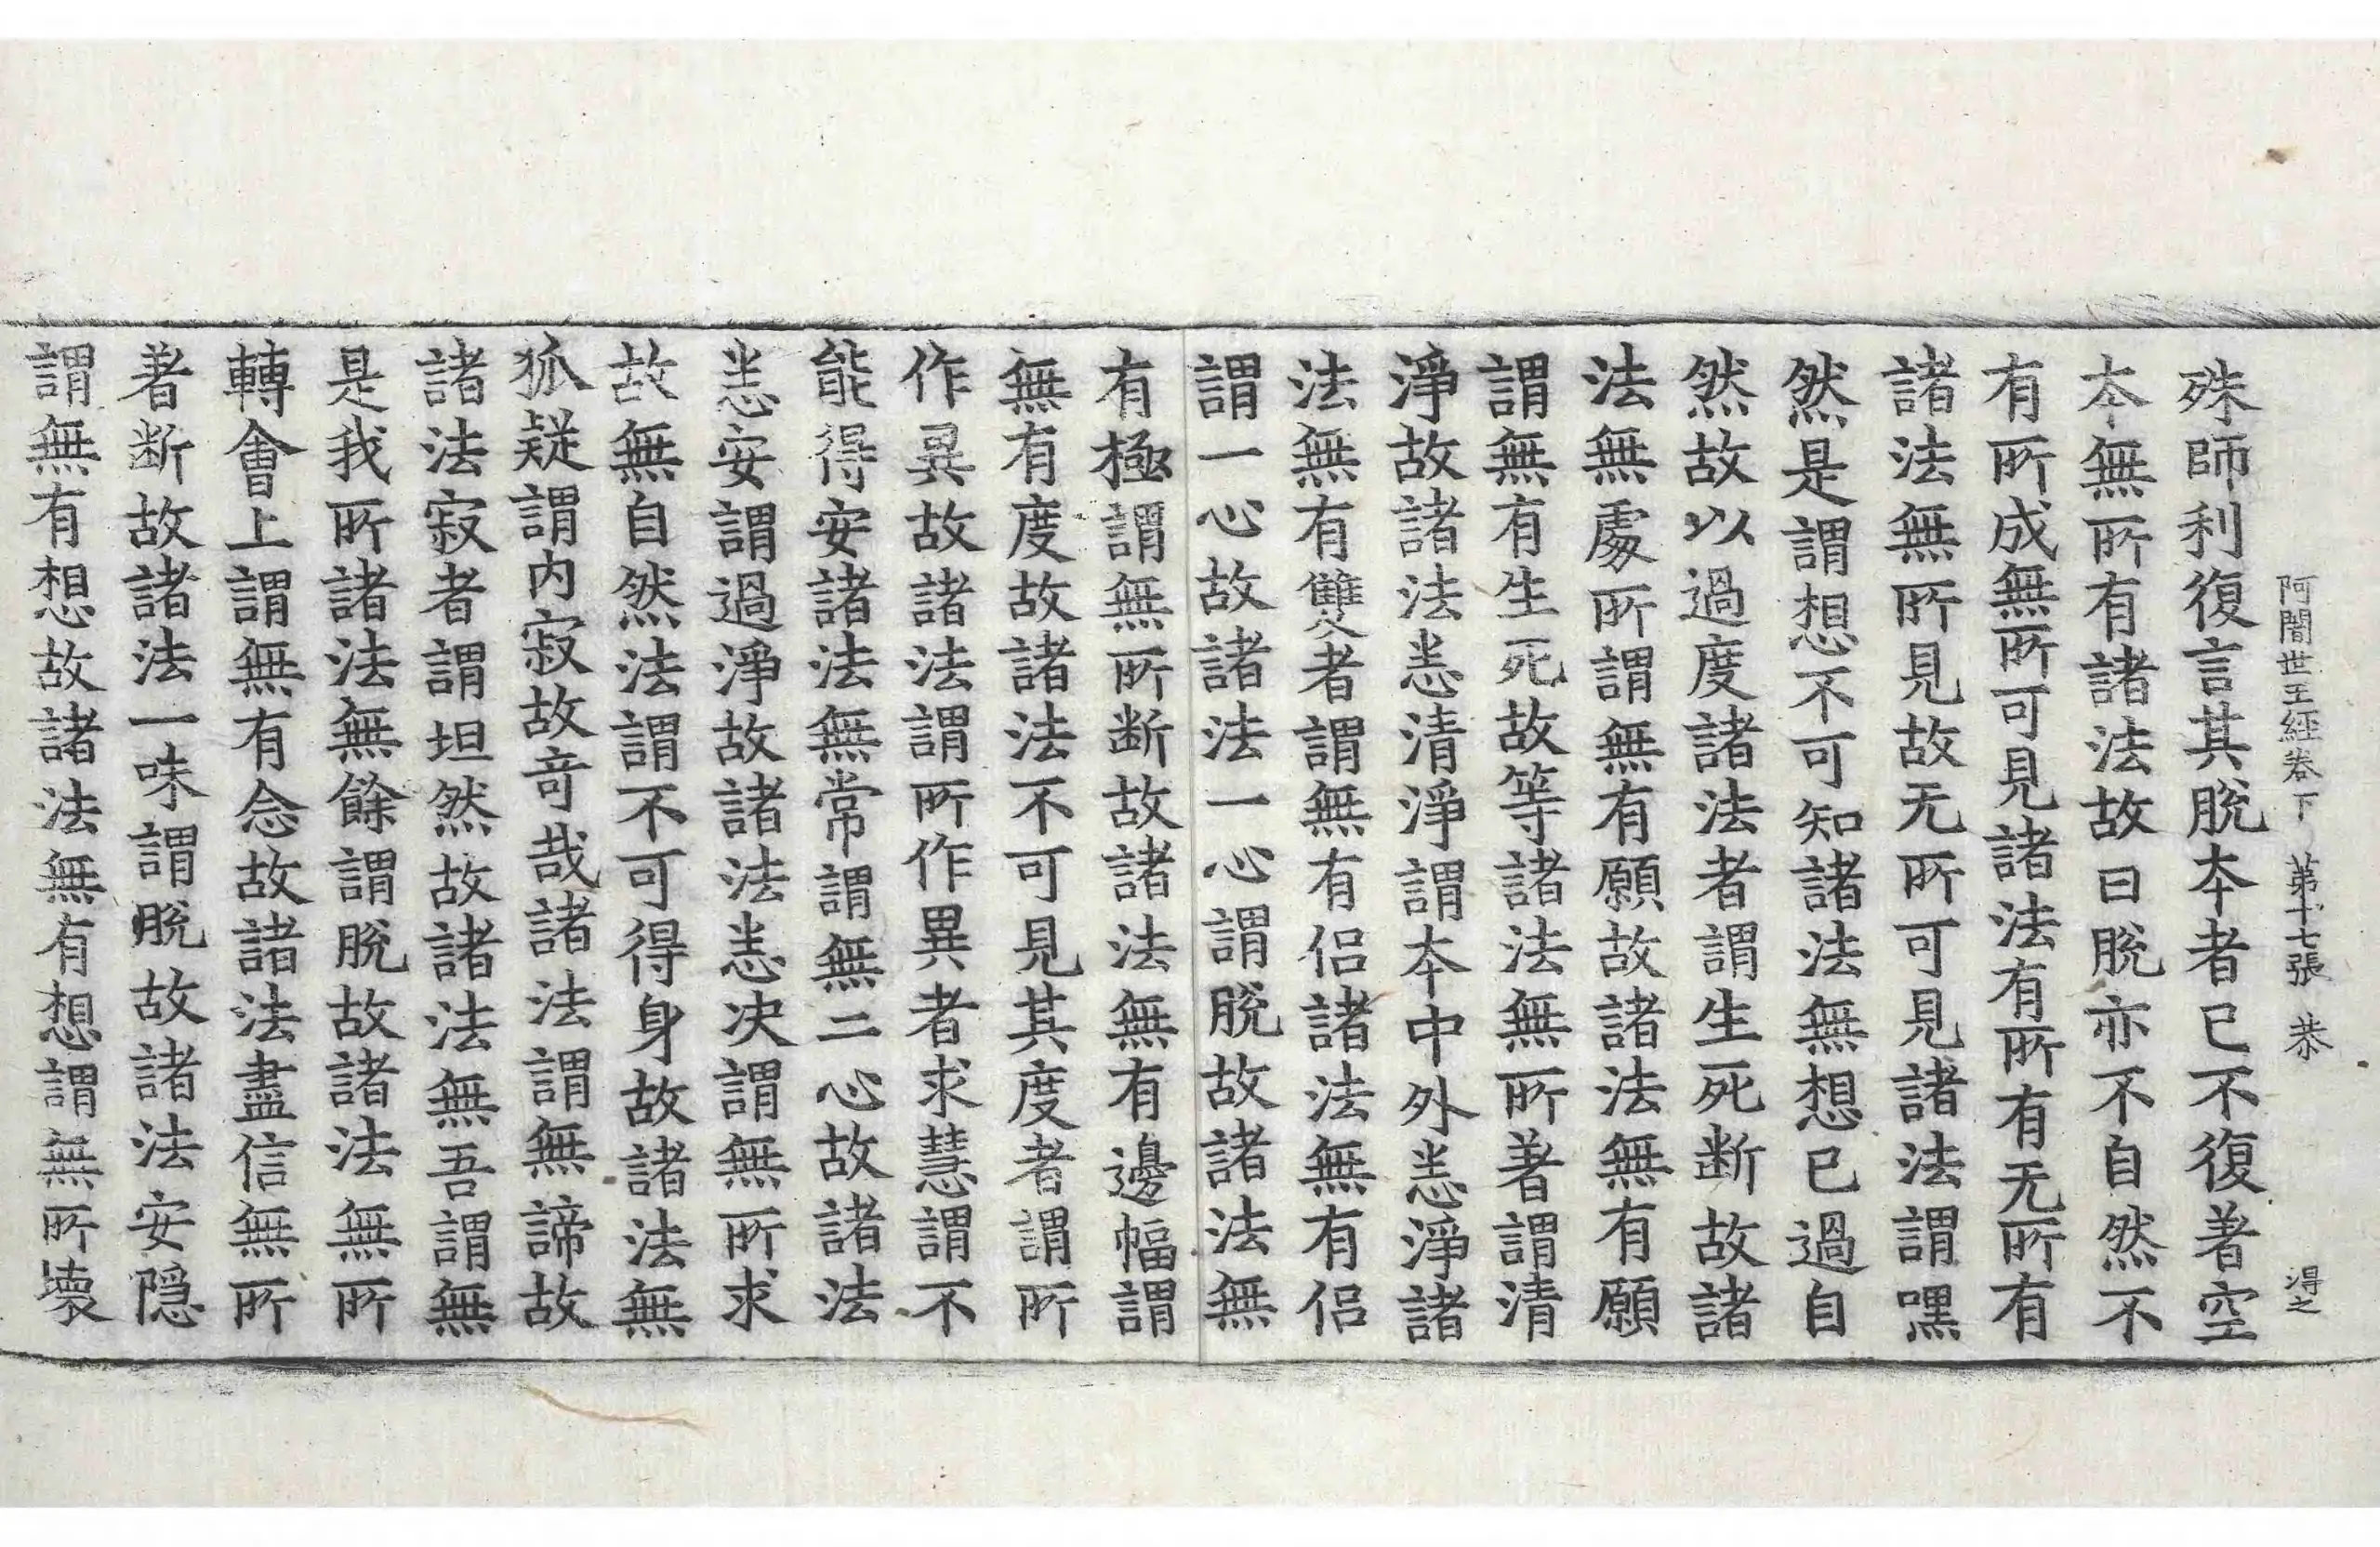 阿闍世王經卷下　第十七張　恭　淂之
殊師利復言其脫本者已不復著空
本無所有諸法故曰脫亦不自然不
有所成無所可見諸法有所有无所有
諸法無所見故无所可見諸法謂嘿
然是謂想不可知諸法無想已過自
然故以過度諸法者謂生死断故諸
法無處所謂無有願故諸法無有願
謂無有生死故等諸法無所著謂清
淨故諸法悉清淨謂本中外悉淨諸
法無有雙者謂無有侣諸法無有侣
謂一心故諸法一心謂脫故諸法無
有極謂無所断故諸法無有邊幅謂
無有度故諸法不可見其度者謂所
作異故諸法謂所作異者求慧謂不
能得安諸法無常謂無二心故諸法
悉安謂過淨故諸法悉决謂無所求
故無自然法謂不可得身故諸法無
狐疑謂内寂故竒哉諸法謂無諦故
諸法寂者謂坦然故諸法無吾謂無
是我所諸法無餘謂脫故諸法無所
轉會上謂無有念故諸法盡信無所
著断故諸法一味謂脫故諸法安隠
謂無有想故諸法無有想謂無所壞